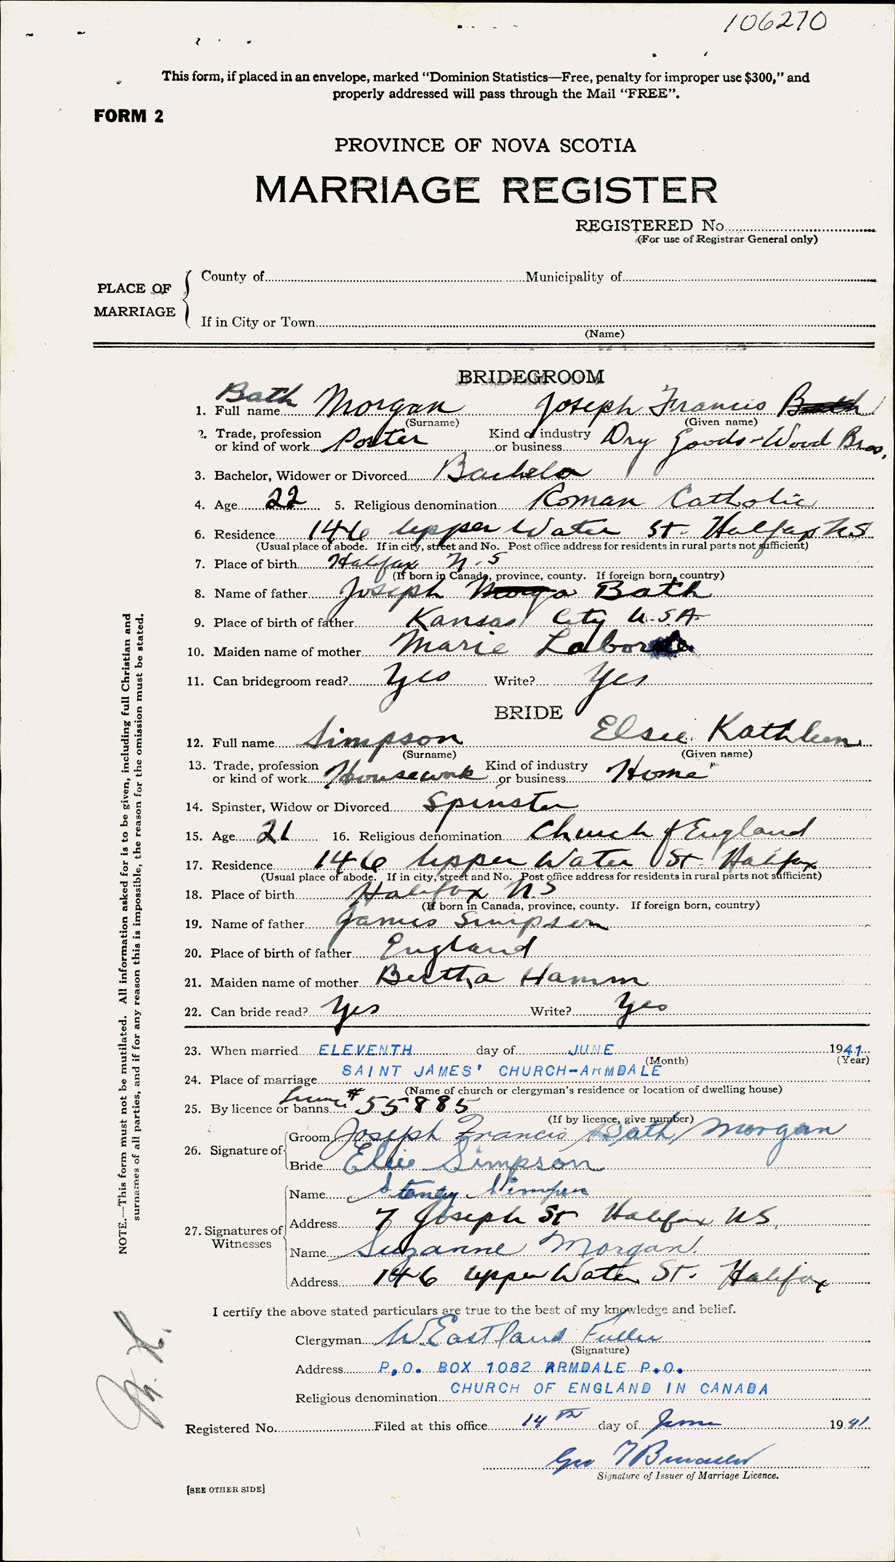 106270
This form, if placed in an envelope, marked "Dominion Statistics—Free, penalty for improper use $300," and
properly addressed will pass through the Mail "FREE".
FORM 2
PROVINCE OF NOVA SCOTIA
MARRIAGE REGISTER
REGISTERED No.
(For use of Registrar General only)
PLACE OF MARRIAGE
County of Municipality of
If in City or Town
(Name)
BRIDEGROOM
Bath
1. Full name Morgan Joseph Francis Bath
(Surname) (Given name)
2. Trade, profession or kind of work Porter Kind of industry or business Dry Goods-Wood Bros.
3. Bachelor, Widower or Divorced Bachelor
4. Age 22 5. Religious denomination Roman Catholic
6. Residence 146 Upper Water St. Halifax NS
(Usual place of abode. If in city, street and No. Post office address for residents in rural parts not sufficient)
7. Place of birth Halifax N.S
(If born in Canada, province, county. If foreign born, country)
8. Name of father Joseph Bath
9. Place of birth of father Kansas City U.S.A
10. Maiden name of mother Marie
11. Can bridegroom read? Yes Write? Yes
BRIDE
12. Full name Simpson Elsie Kathleen
(Surname) (Given name)
13. Trade, profession or kind of work Housework Kind of industry or business Home
14. Spinster, Widow or Divorced Spinster
15. Age 21 16. Religious denomination Church of England
17. Residence 146 Upper Water St Halifax
(Usual place of abode. If in city, street and No. Post office address for residents in rural parts not sufficient)
18. Place of birth Halifax NS
(If born in Canada, province, county. If foreign born, country)
19. Name of father James Simpson
20. Place of birth of father England
21. Maiden name of mother Bertha Hamm
22. Can bride read? Yes Write? Yes
23. When married ELEVENTH day of JUNE 1941
(Month) (Year)
24. Place of marriage SAINT JAMES' CHURCH-ARMDALE
(Name of church or clergyman's residence or location of dwelling house)
25. By licence or banns # 55885
(If by licence, give number)
26. Signature of
Groom Joseph Francis Bath Morgan
Bride Elsie Simpson
27. Signatures of Witnesses
Name Simpson
Address 7 Joseph St Halifax NS.
Name Suzanne Morgan
Address 146 Upper Water St. Halifax
I certify the above stated particulars are true to the best of my knowledge and belief.
Clergyman W Eastland Fuller
(Signature)
Address P.O. BOX 1082 ARMDALE P.O.
Religious denomination CHURCH OF ENGLAND IN CANADA
Registered No. Filed at this office 14th day of June 1941
Geo
Signature of Issuer of Marriage Licence.
[SEE OTHER SIDE]
NOTE.—This form must not be mutilated. All information asked for is to be given, including full Christian and
surnames of all parties, and if for any reason this is impossible, the reason for the omission must be stated.